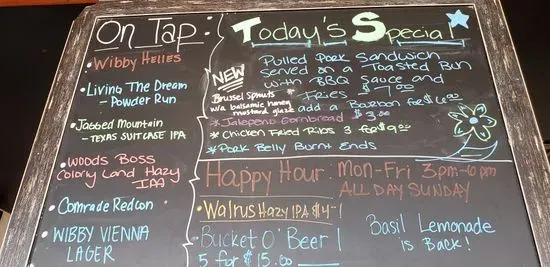 On Tap:
• Wibby Helles
• Living The Dream
- Powder Run
• Jagged Mountain
- TEXAS SUITCASE IPA
• Woods Boss
Colony Land Hazy
IPA
• Comrade Redcon
• WIBBY VIENNA
LAGER
Today's Special
Pulled Pork Sandwich
served on a Toasted Bun
with BBQ Sauce and
Fries $7.00
add a Bourbon for $6.00
NEW
Brussel Sprouts
w/a balsamic honey
mustard glaze
* Jalapeno Cornbread $3.00
* Chicken Fried Ribs 3 for $9.00
* Pork Belly Burnt Ends
Happy Hour: Mon-Fri 3pm-6pm
ALL DAY SUNDAY
• Walrus Hazy IPA $4-
• Bucket O' Beer
5 for $15.00
Basil Lemonade
is Back!